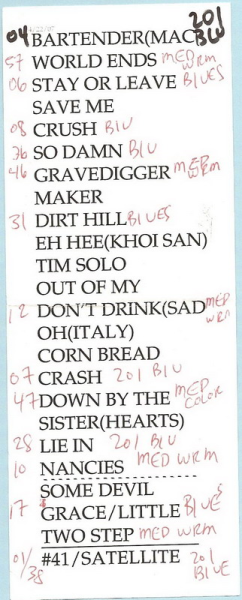 04 BARTENDER(MAC 201 BLU
57 WORLD ENDS MED WRM
06 STAY OR LEAVE BLUES
SAVE ME
08 CRUSH BLU
36 SO DAMN BLU
46 GRAVEDIGGER MED WRM
MAKER
31 DIRT HILL BLUES
EH HEE(KHOI SAN)
TIM SOLO
OUT OF MY
12 DON'T DRINK(SAD MED WRM
OH(ITALY)
CORN BREAD
07 CRASH 201 BLU
47 DOWN BY THE MED COLOR
SISTER(HEARTS)
28 LIE IN 201 BLU
10 NANCIES MED WRM
SOME DEVIL
17 GRACE/LITTLE BLUES
TWO STEP MED WRM
01/38 #41/SATELLITE 201 BLUE